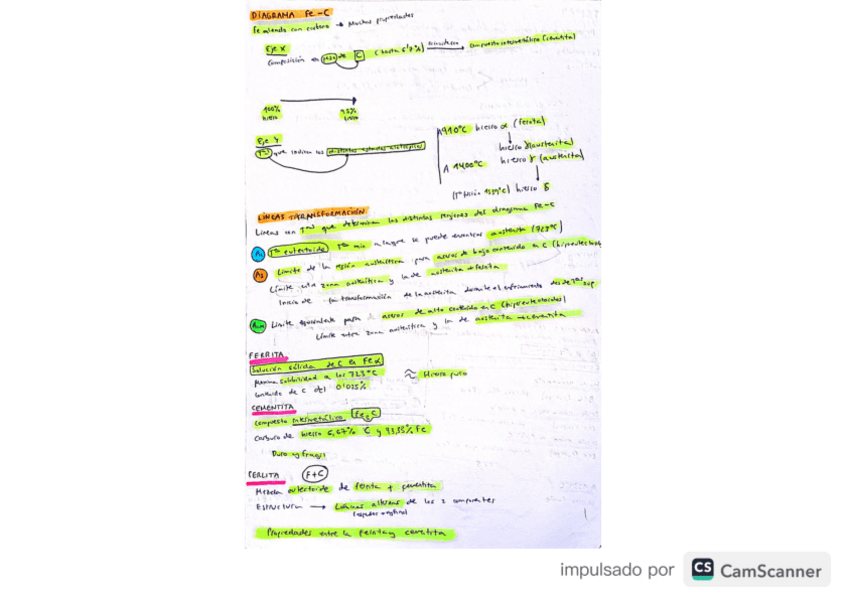 DIAGRAMA Fe-C
Se alienda con carbono → Muchas propiedades
Eje X
Composición en peso de C (hasta 6'7%) compuesto intermetálico (cementita)
100% hierro 93% hierro
Eje Y
Tas que indican los distintos estados alotrópicos
A 910°C hierro α (ferrita)
hierro γ (austenita)
A 1400°C hierro γ (austenita)
(Tª fusión 1539°C) hierro δ
LÍNEAS TRANSFORMACIÓN
Líneas en Tas que determinan las distintas regiones del diagrama Fe-C
A1 Tª eutectoide Tª min a la que se puede encontrar austenita (723°C)
A3 Límite de la región austenítica para aceros de bajo contenido en C
Límite entre zona austenítica y la de austenita + ferrita
Inicio de la transformación de la austenita durante el enfriamiento desde Tas sup
Acm Límite equivalente para aceros de alto contenido en C (hipereutectoides)
Límite entre zona austenítica y la de austenita + cementita
FERRITA
Solución sólida de C en Feα
Máxima solubilidad a los 723°C ≈ Hierro puro
Contenido de C del 0'025%
CEMENTITA
Compuesto intermetálico Fe3C
Carburo de hierro 6,67% C y 93,33% Fe
Duro y frágil
PERLITA F+C
Mezcla eutectoide de ferrita + cementita
ESTRUCTURA → Láminas alternas de los 2 componentes
Propiedades entre la ferrita y cementita
1
impulsado por CS CamScanner